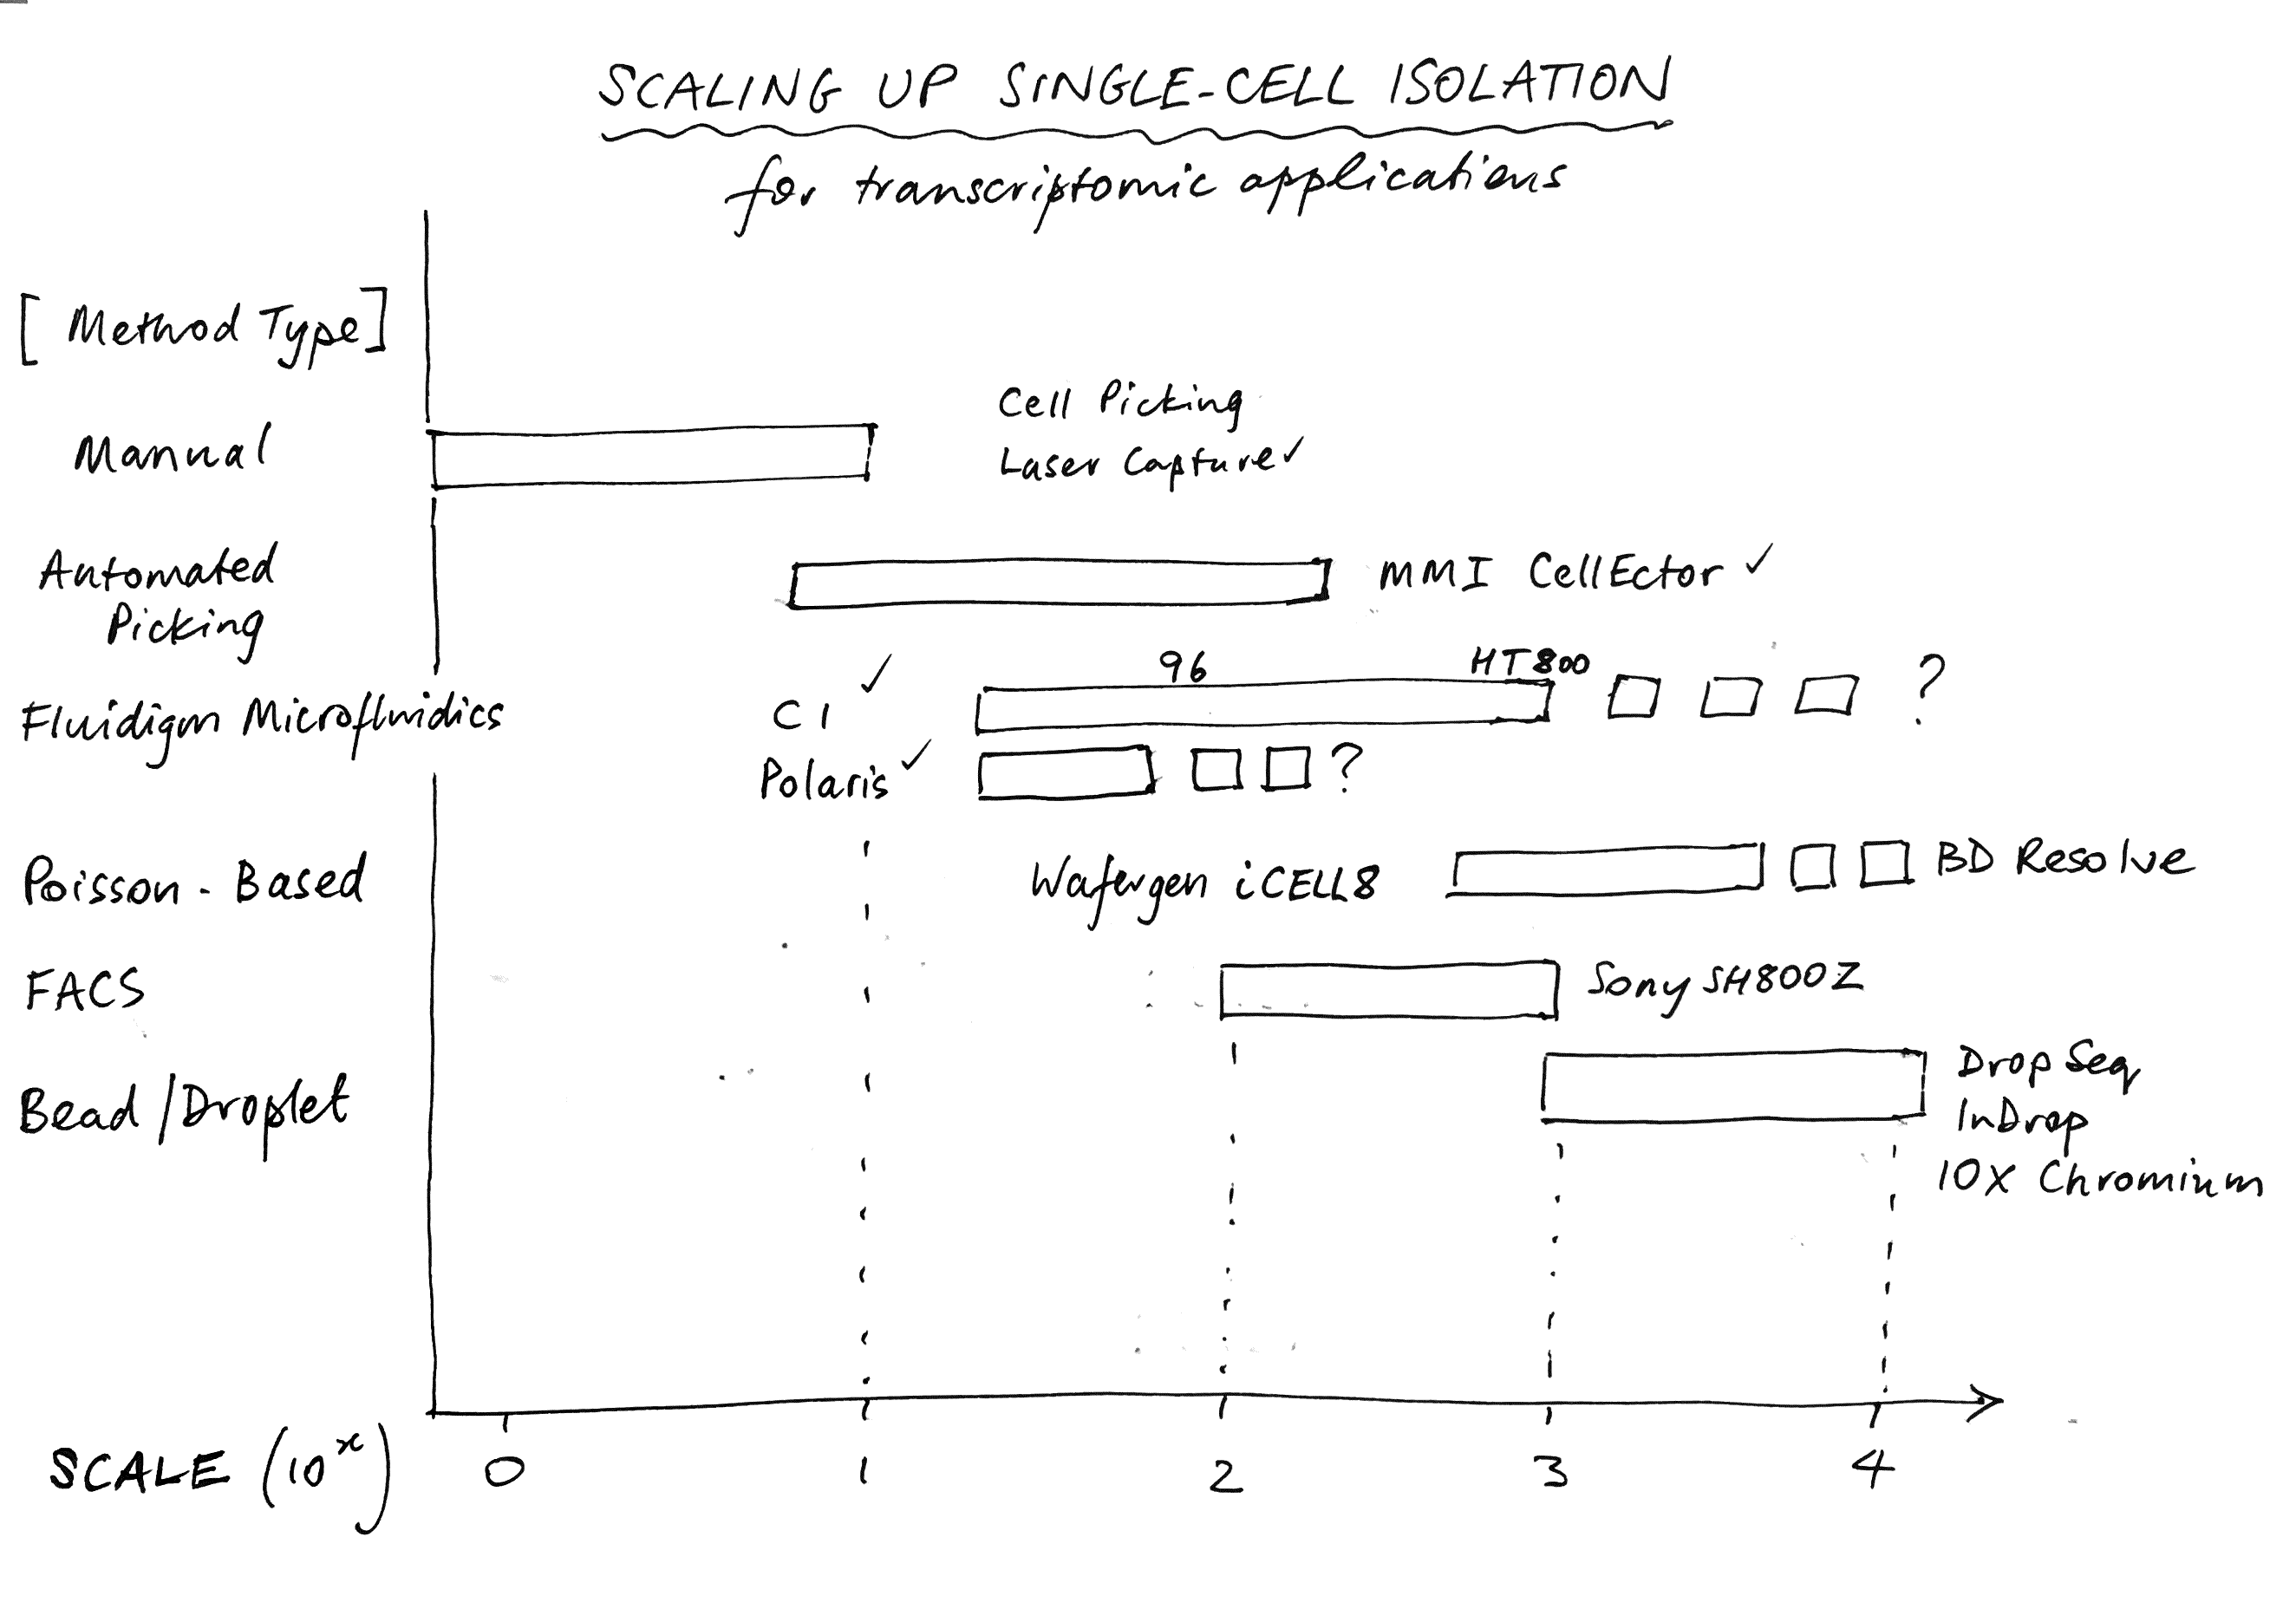 SCALING UP SINGLE-CELL ISOLATION
for transcriptomic applications
[Method Type]
Manual
Cell Picking
Laser Capture ✓
Automated
Picking
MMI CellEctor ✓
Fluidigm Microfluidics
C1 ✓
96
HT800
?
Polaris ✓
?
Poisson-Based
Wafergen iCELL8
BD Resolve
FACS
Sony SH800Z
Bead/Droplet
Drop Seq
InDrop
10X Chromium
SCALE (10^x)
0 1 2 3 4